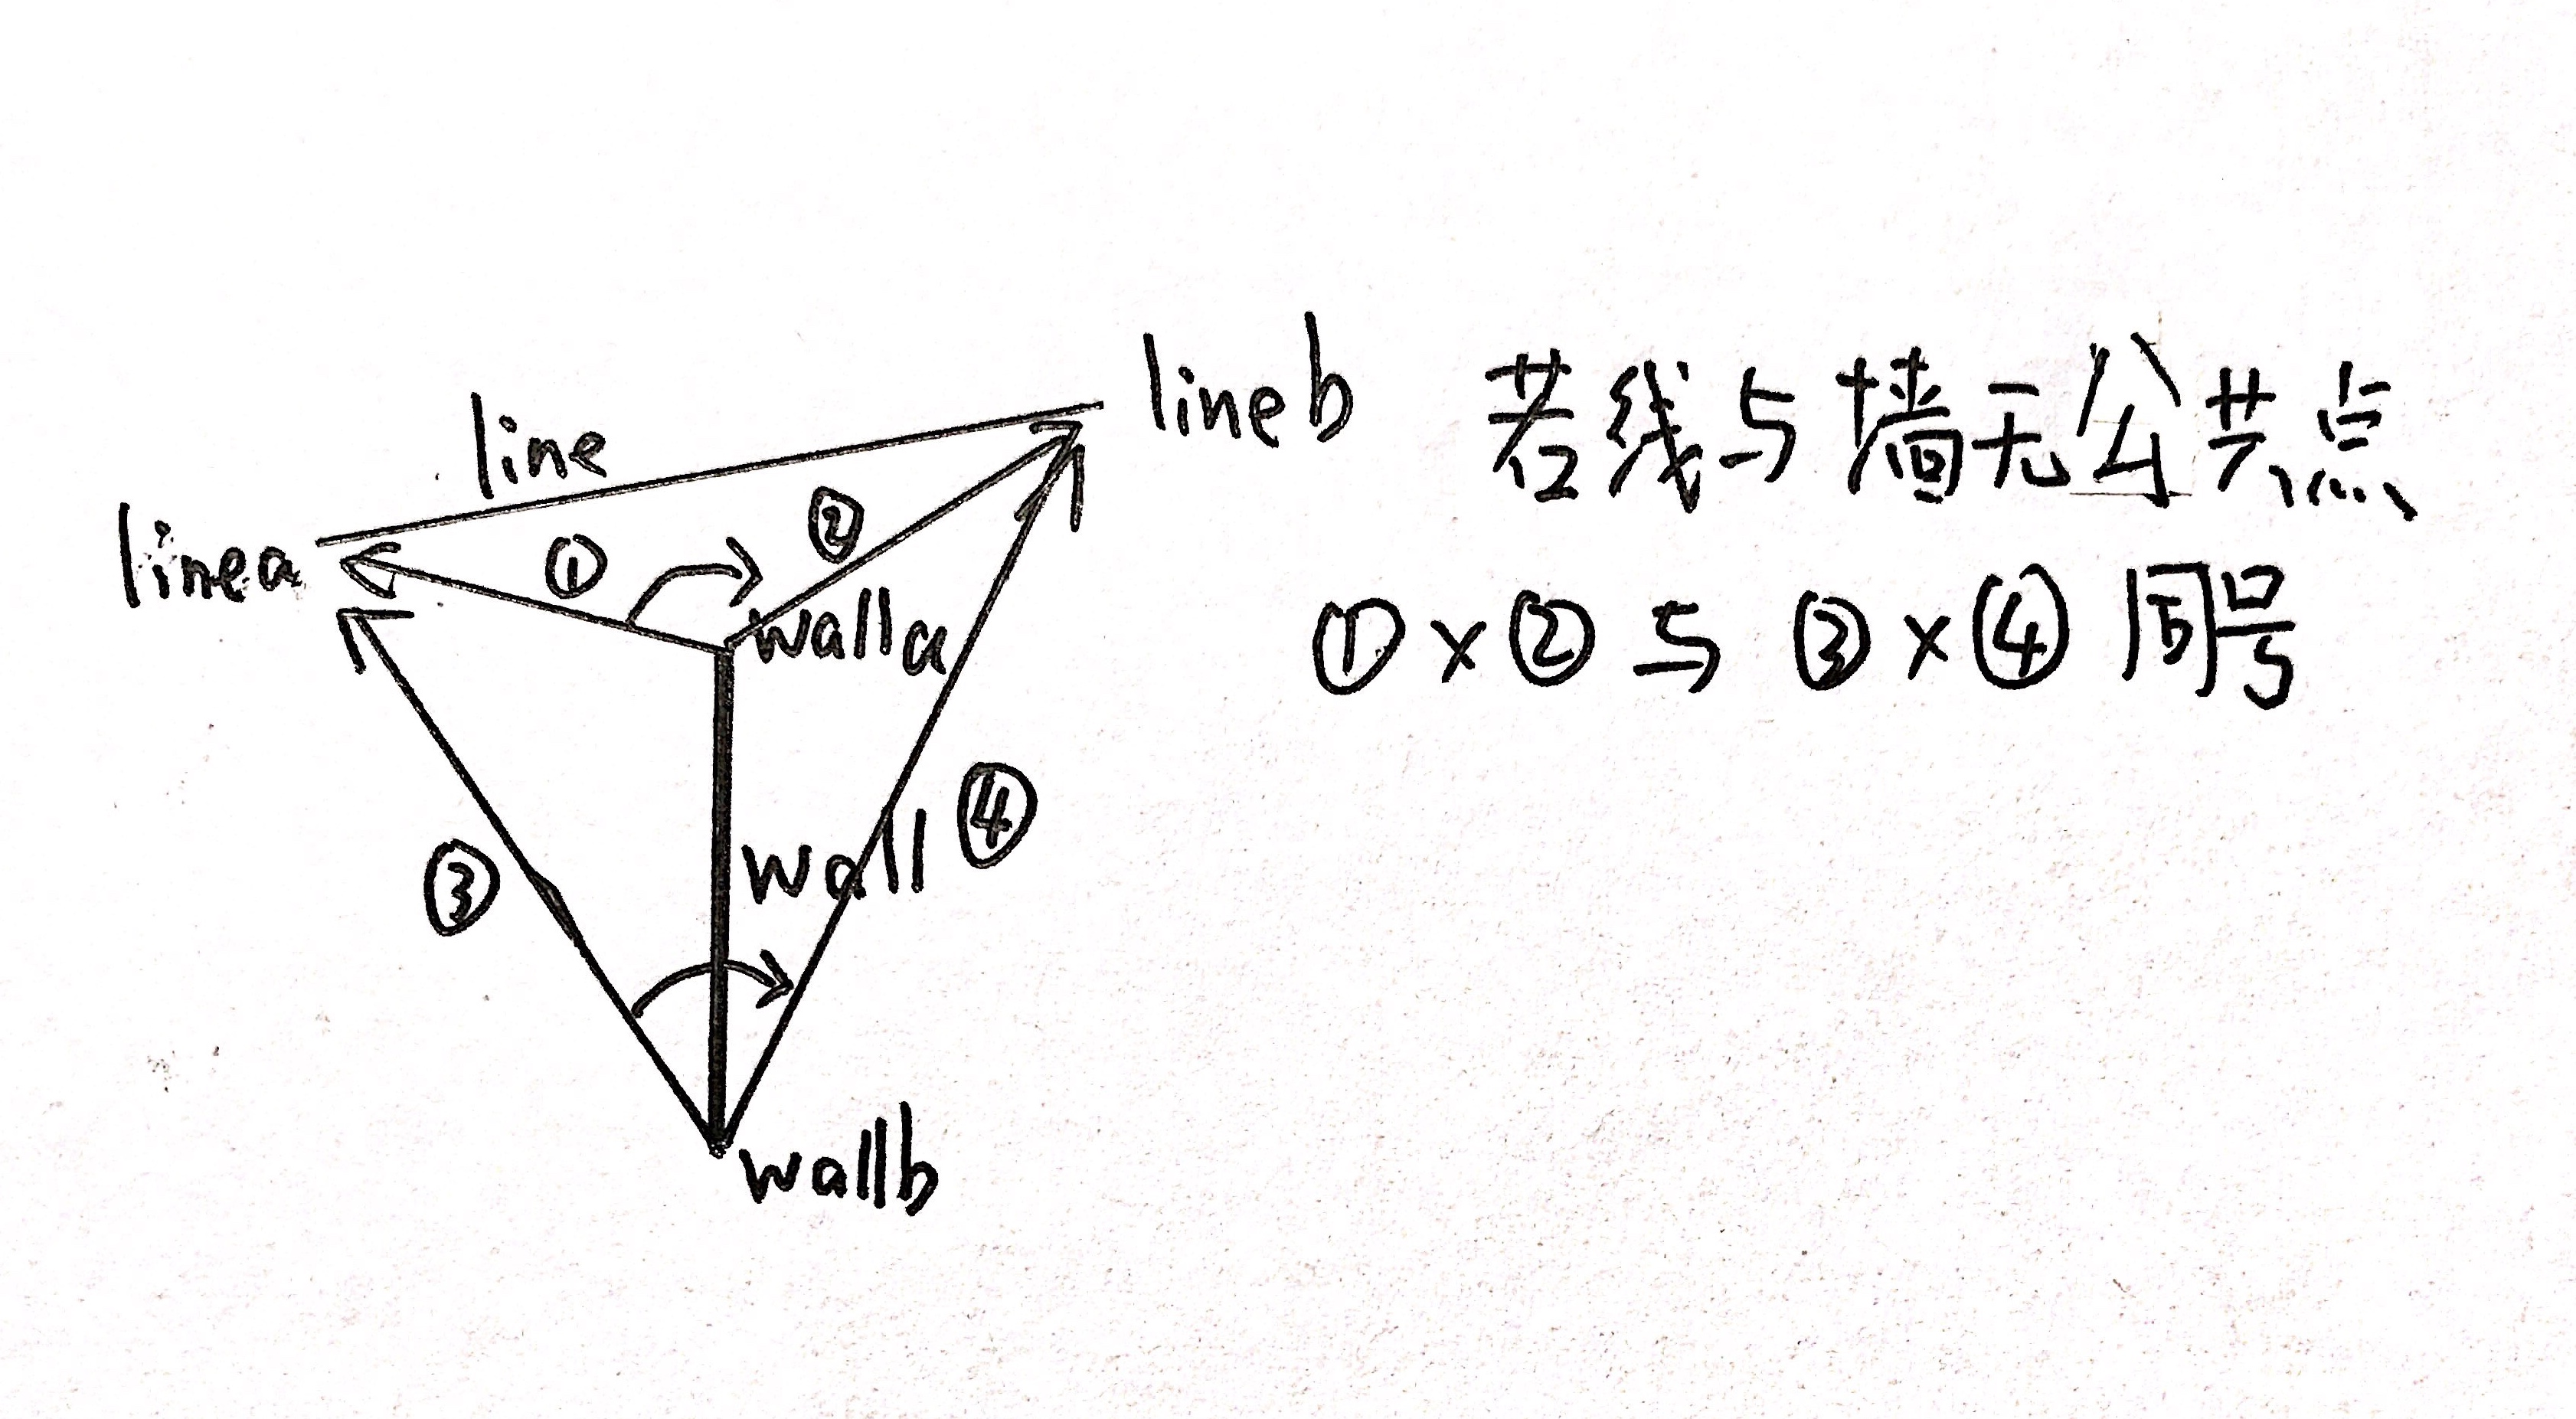 lineb
line
linea
①
②
walla
wall
③
④
wallb
若线与墙无公共节点
①×②与③×④同号